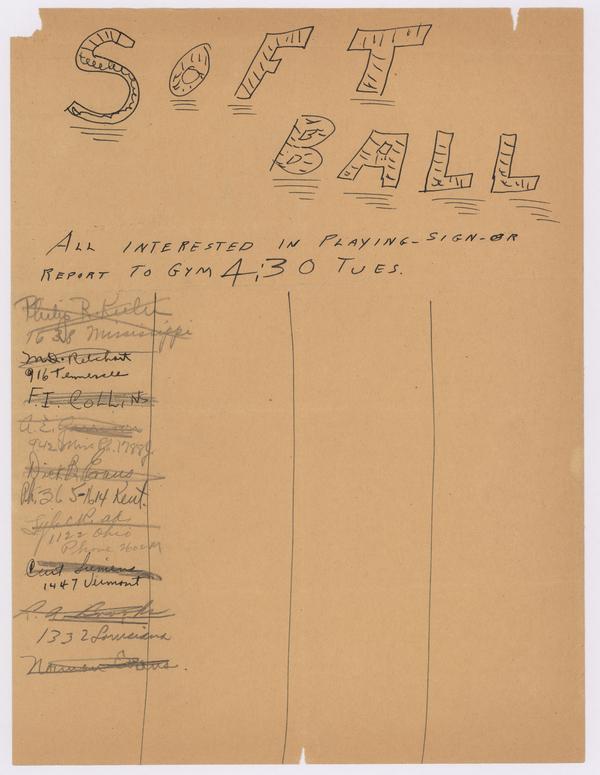 SOFT
BALL
ALL INTERESTED IN PLAYING-SIGN-OR
REPORT TO GYM 4:30 TUES.
Philip R.
1638 Mississippi
916 Tennessee
F.I. COLLINS
A.E.
942 Miss Ph.
Dick B. Evans
Ph. 365-1614 Kent.
1122 Ohio
Phone
Curt Siemens
1447 Vermont
1332 Louisiana
Norman Evans.